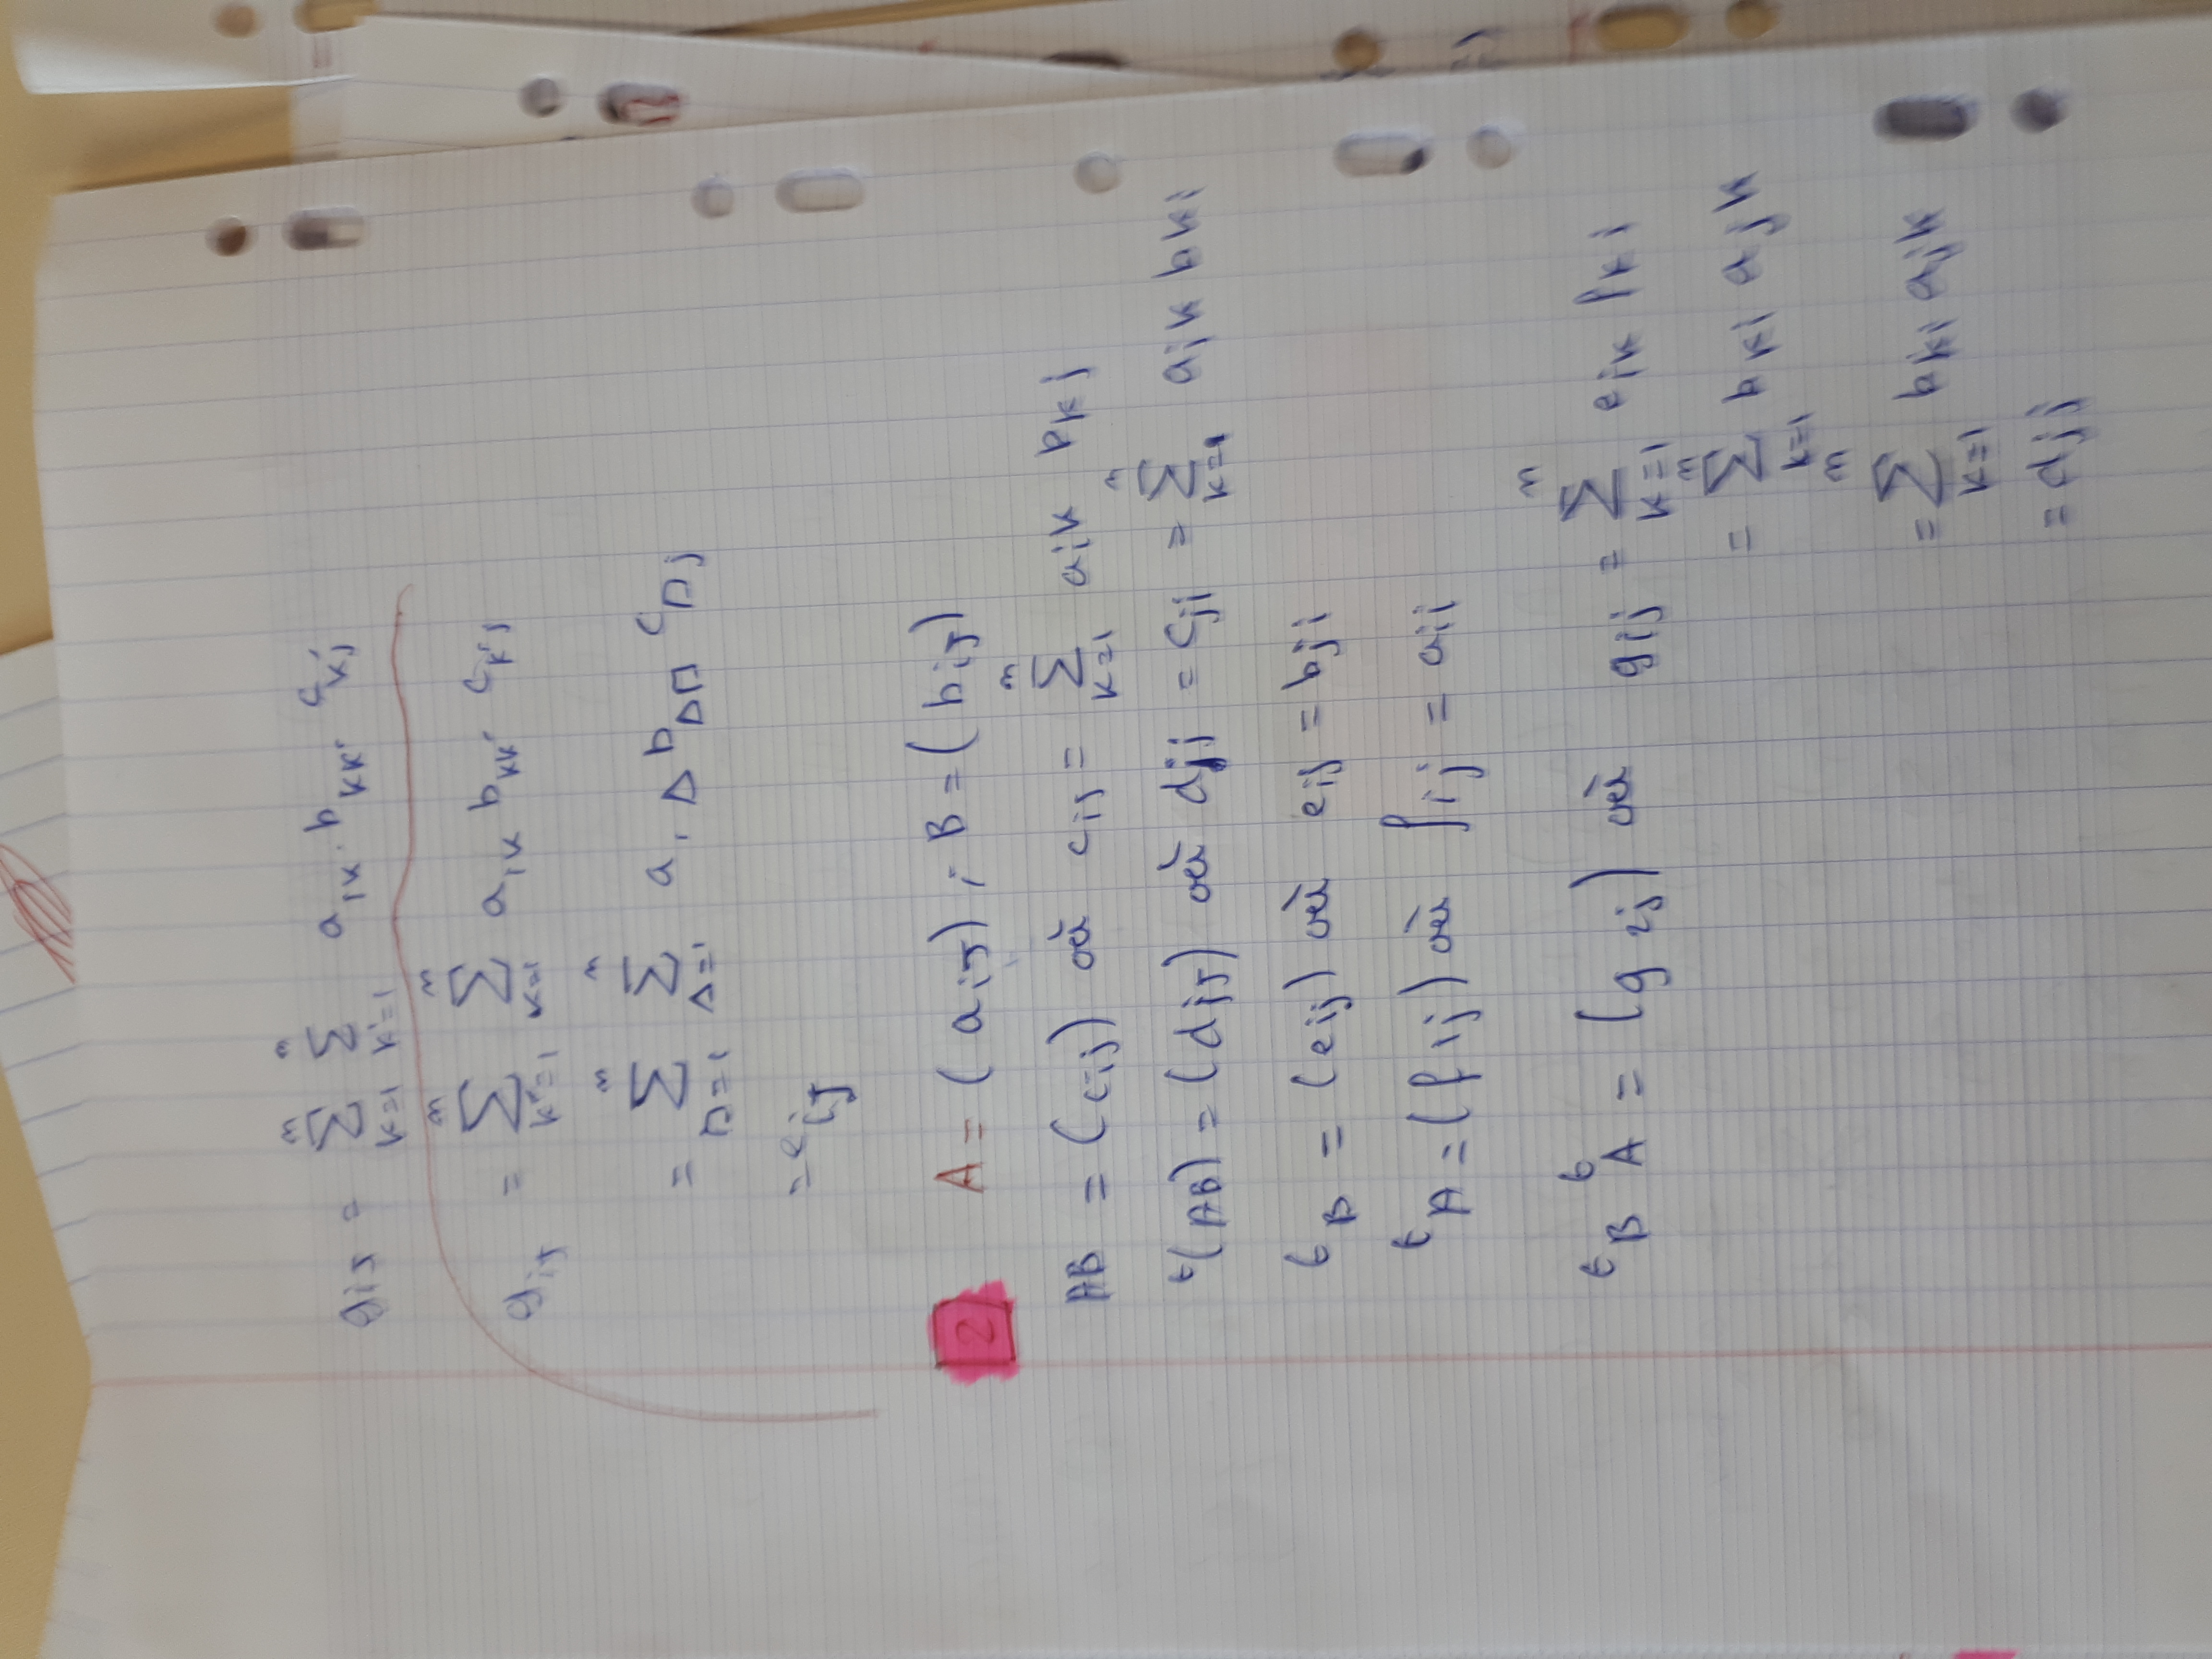 gij = ∑_{k=1}^{n} ∑_{k'=1}^{n} a_{ik} . b_{kk'} c_{k'j}
gij = ∑_{k'=1}^{n} ∑_{k=1}^{n} a_{ik} b_{kk'} c_{k'j}
= ∑_{□=1}^{n} ∑_{Δ=1}^{n} a_{iΔ} b_{Δ□} c_{□j}
= e_{ij}
2 A = (aij) ; B = (bij)
AB = (cij) où cij = ∑_{k=1}^{n} aik bkj
^t(AB) = (dij) où dji = cji = ∑_{k=1}^{n} ajk bki
^tB = (eij) où eij = bji
^tA = (fij) où fij = aii
^tB ^tA = (gij) où gij = ∑_{k=1}^{n} eik fkj
= ∑_{k=1}^{n} bki ajk
= ∑_{k=1}^{n} bki ajk
= dij